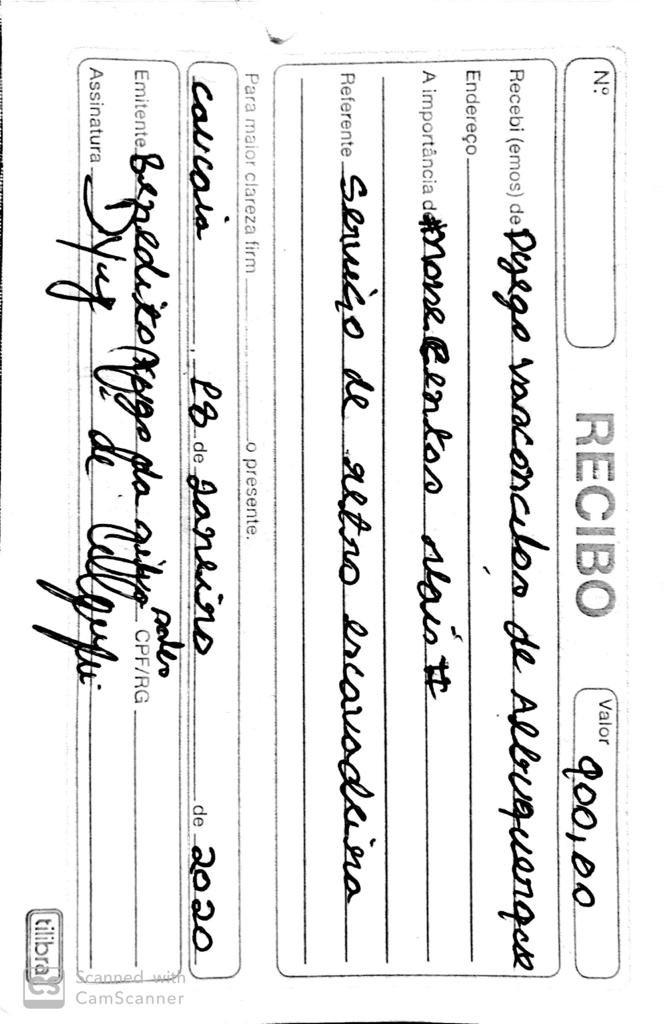 Nº
RECIBO
Valor 900,00
Recebi (emos) de Dyego Vasconcelos de Albuquerque
Endereço
A importância de # Novecentos reais #
Referente Serviço de retro escavadeira
Para maior clareza firm o presente.
Caucaia, 18 de Janeiro de 2020
Emitente Benedito CPF/RG
Assinatura
tilibra
CS Scanned with
CamScanner